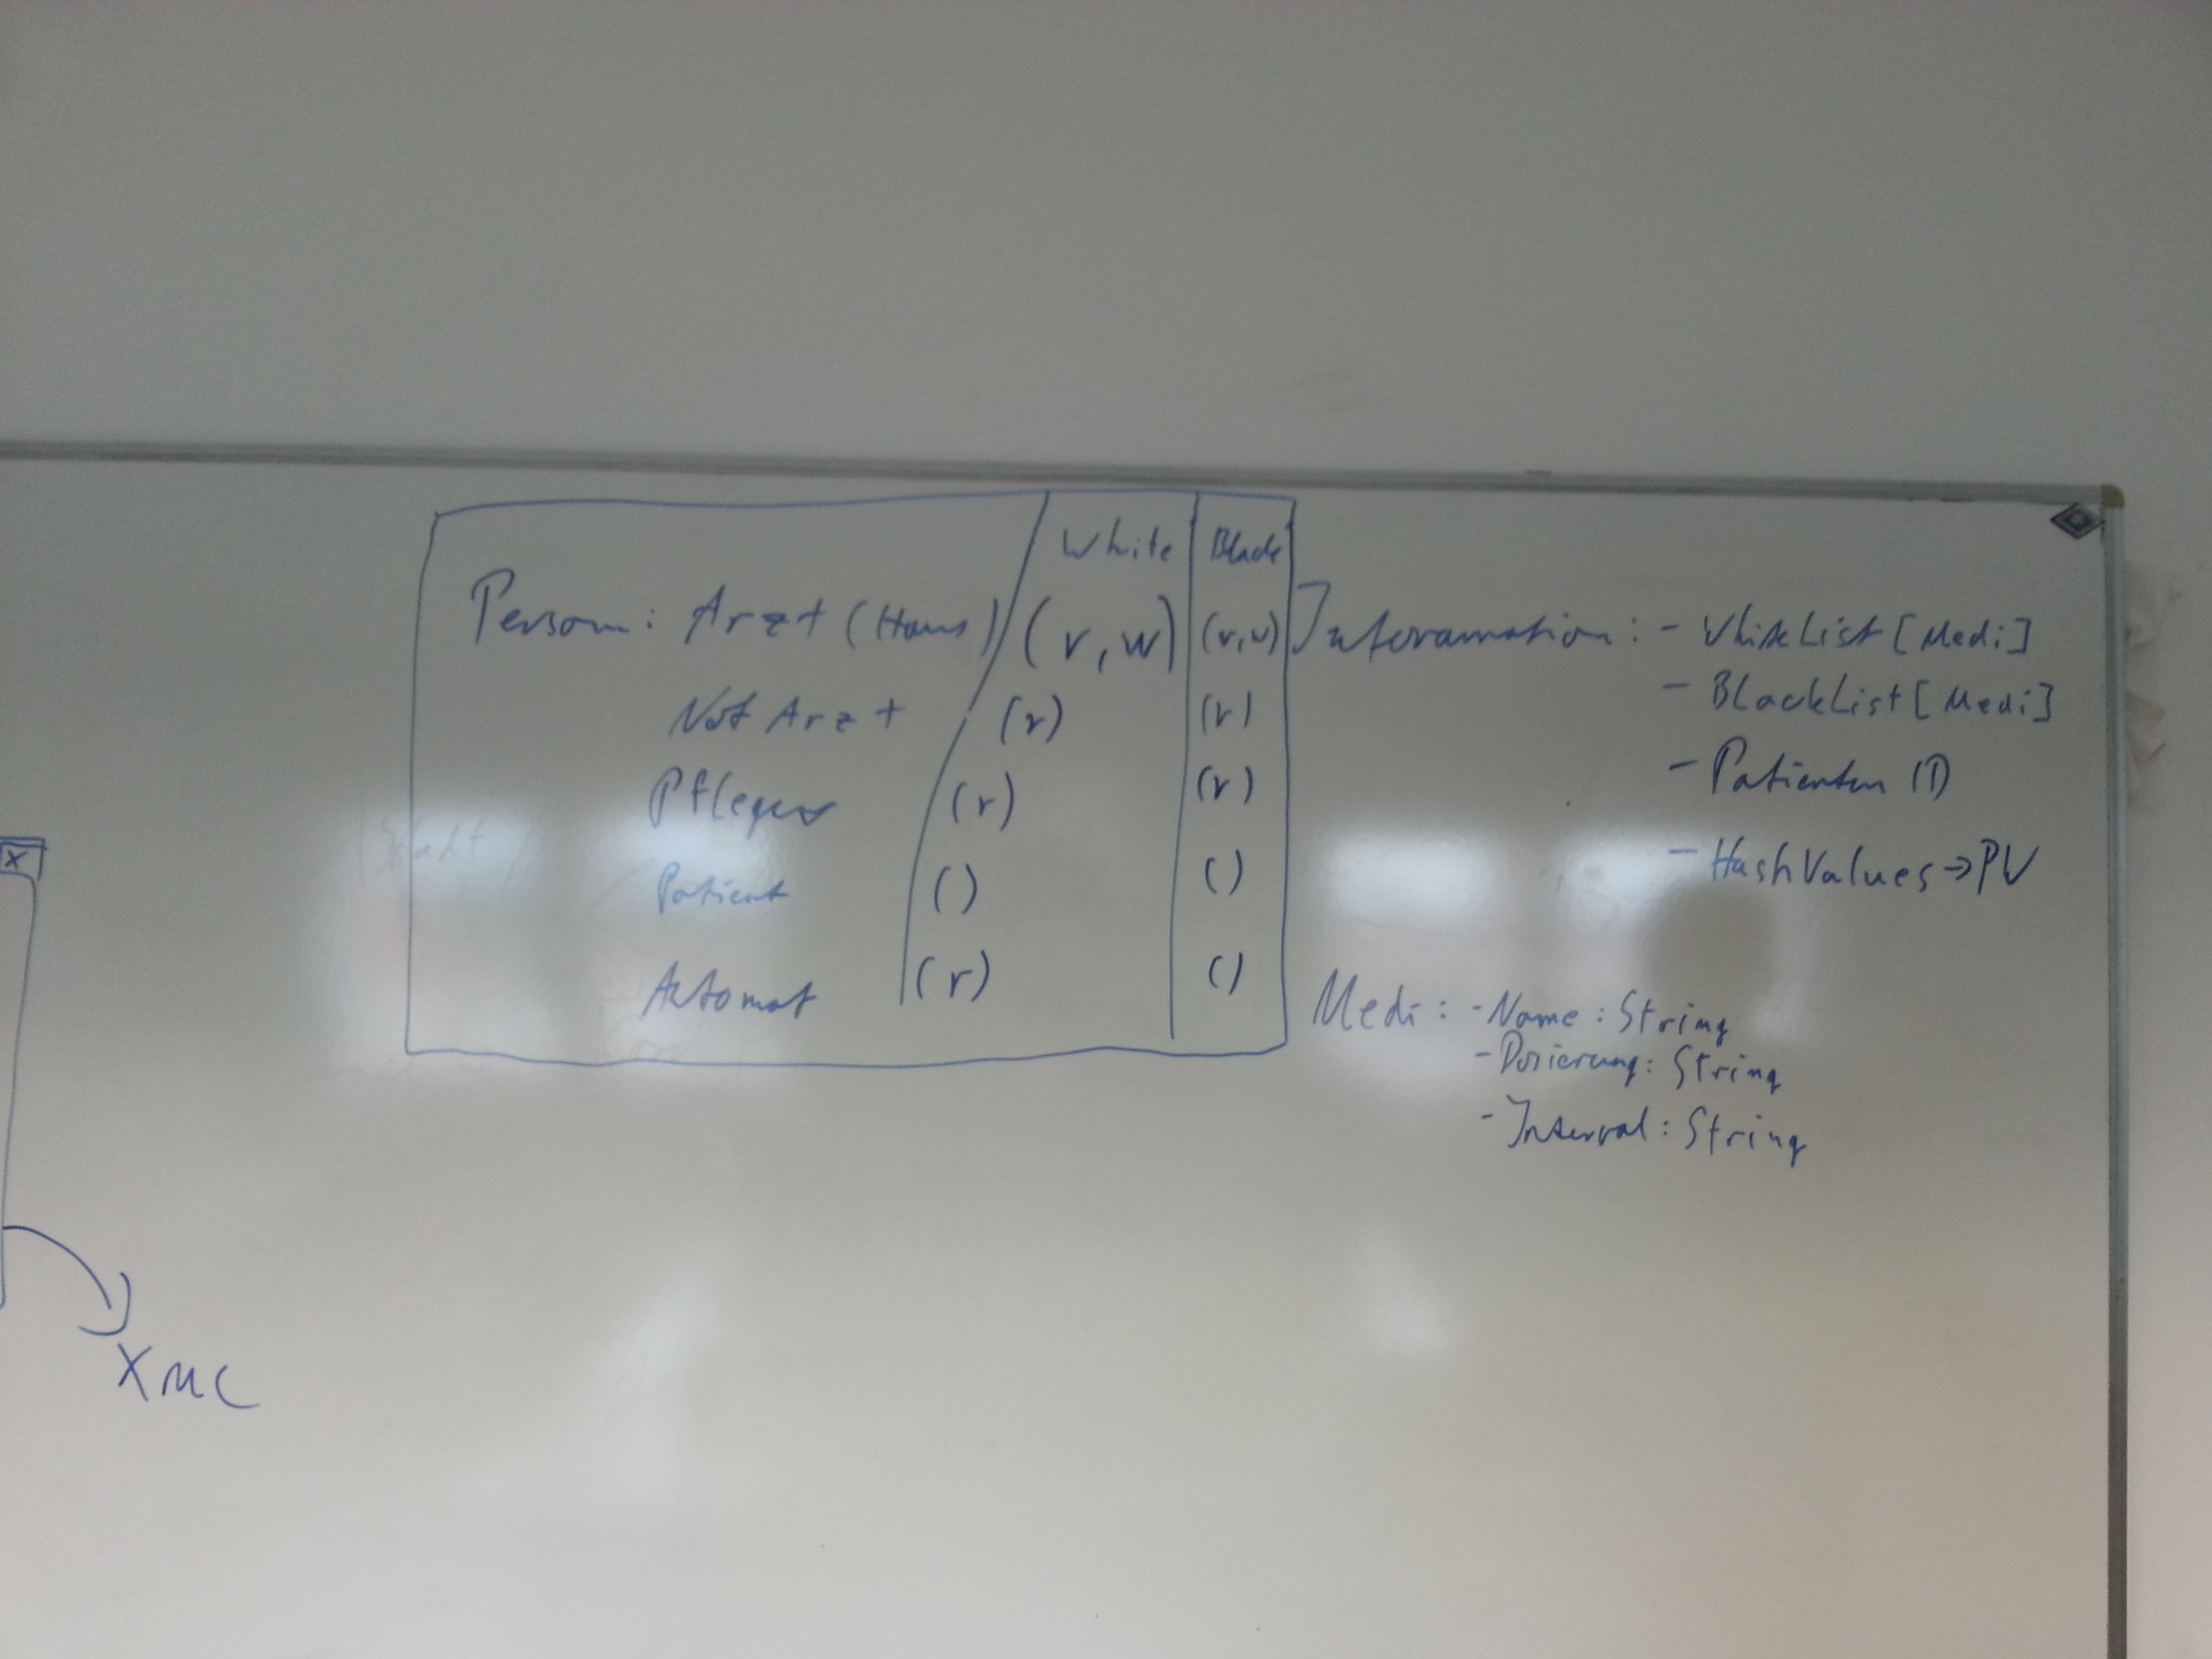 White Black
Person: Arzt (Haus) (r,w) (r,w)
Not Arzt (r) (r)
Pfleger (r) (r)
Patient () ()
Automat (r) ()
Inforamation: - WhiteList [Medi]
- BlackList [Medi]
- Patienten ID
- HashValues → PV
Medi: - Name: String
- Dosierung: String
- Interval: String
X